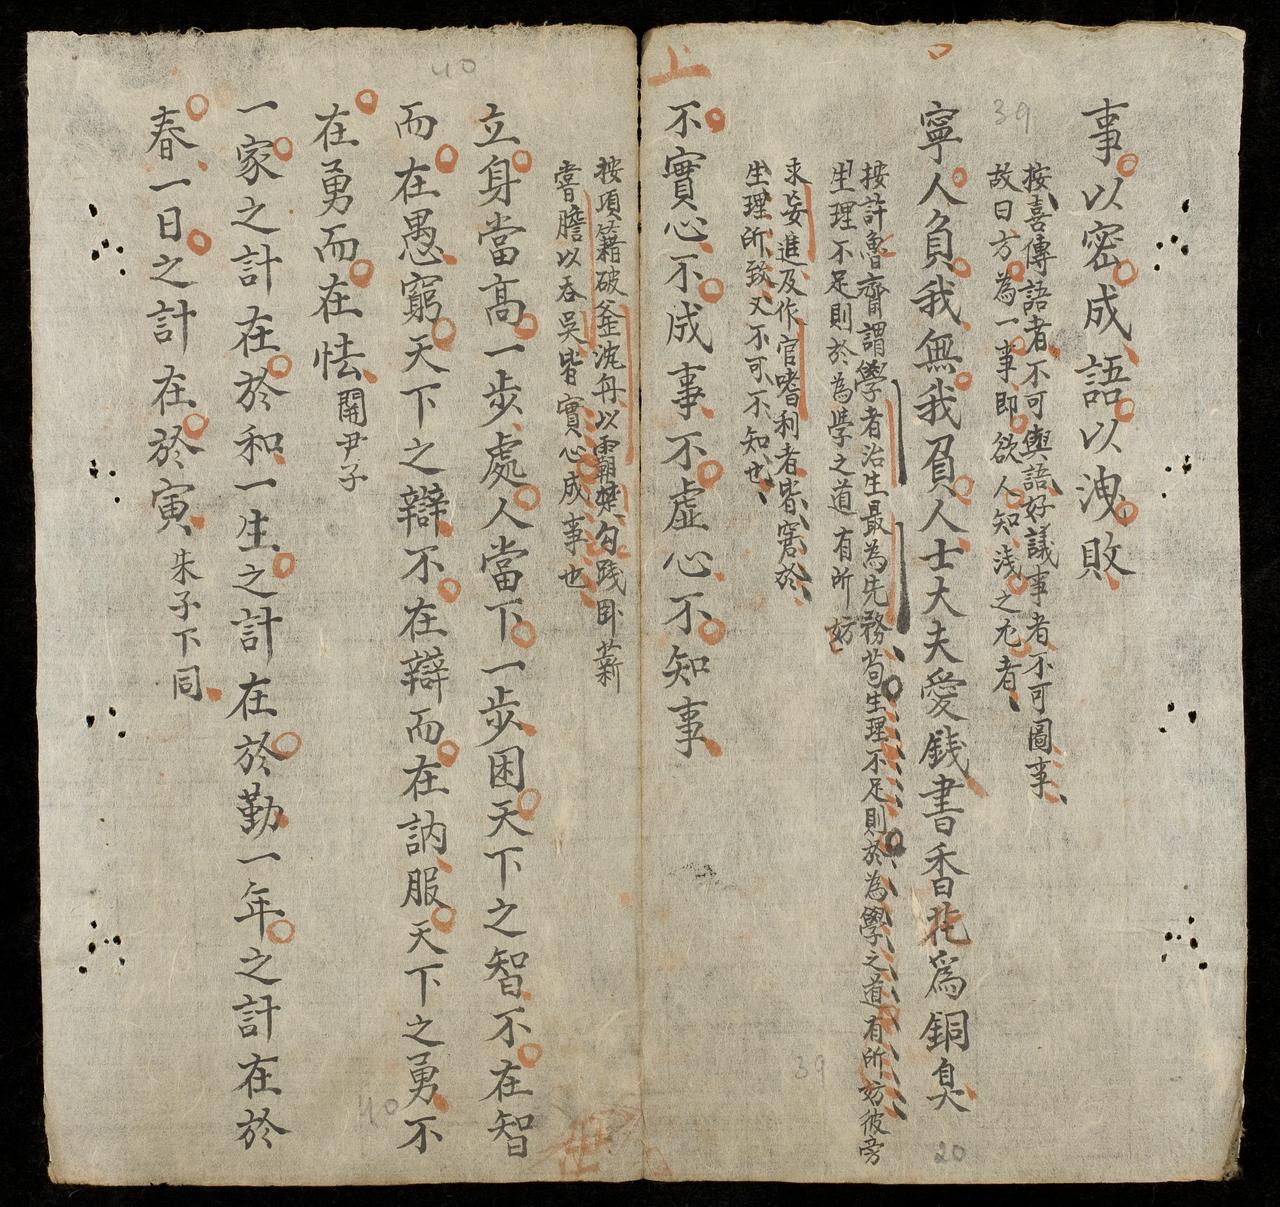 事以密成語以洩敗
按喜傳語者不可與語好議事者不可圖事
故曰方為一事即欲人知浅之尤者
寧人負我無我負人士大夫愛錢書香花爲銅臭
按許魯齋謂學者治生最為先務苟生理不足則於為學之道有所妨彼旁
生理不足則於為學之道有所妨
求妄進及作官嗜利者皆窘於
生理所致又不可不知也
上
不實心不成事不虛心不知事
按項籍破釜沈舟以霸楚勾践卧薪
嘗膽以吞吳皆實心成事也
立身當高一步處人當下一步困天下之智不在智
而在愚窮天下之辯不在辯而在訥服天下之勇不
在勇而在怯開尹子
一家之計在於和一生之計在於勤一年之計在於
春一日之計在於寅朱子下同
39
39
20
40
40